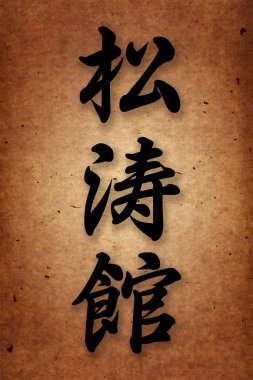 松涛館